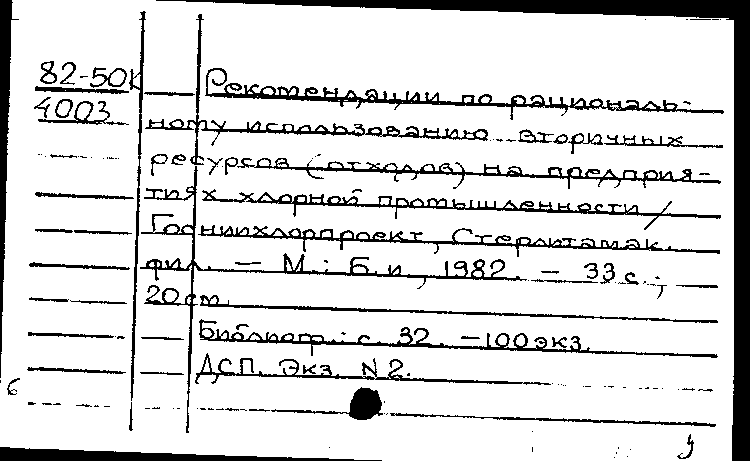 82-50К
4003
Рекомендации по рациональ-
ному использованию вторичных
ресурсов (отходов) на предприя-
тиях хлорной промышленности /
Госниихлорпроект, Стерлитамак.
фил. — М.: Б.и., 1982. — 33 с.;
20 см.
Библиогр.: с. 32. — 100 экз.
ДСП. Экз. N 2.
6